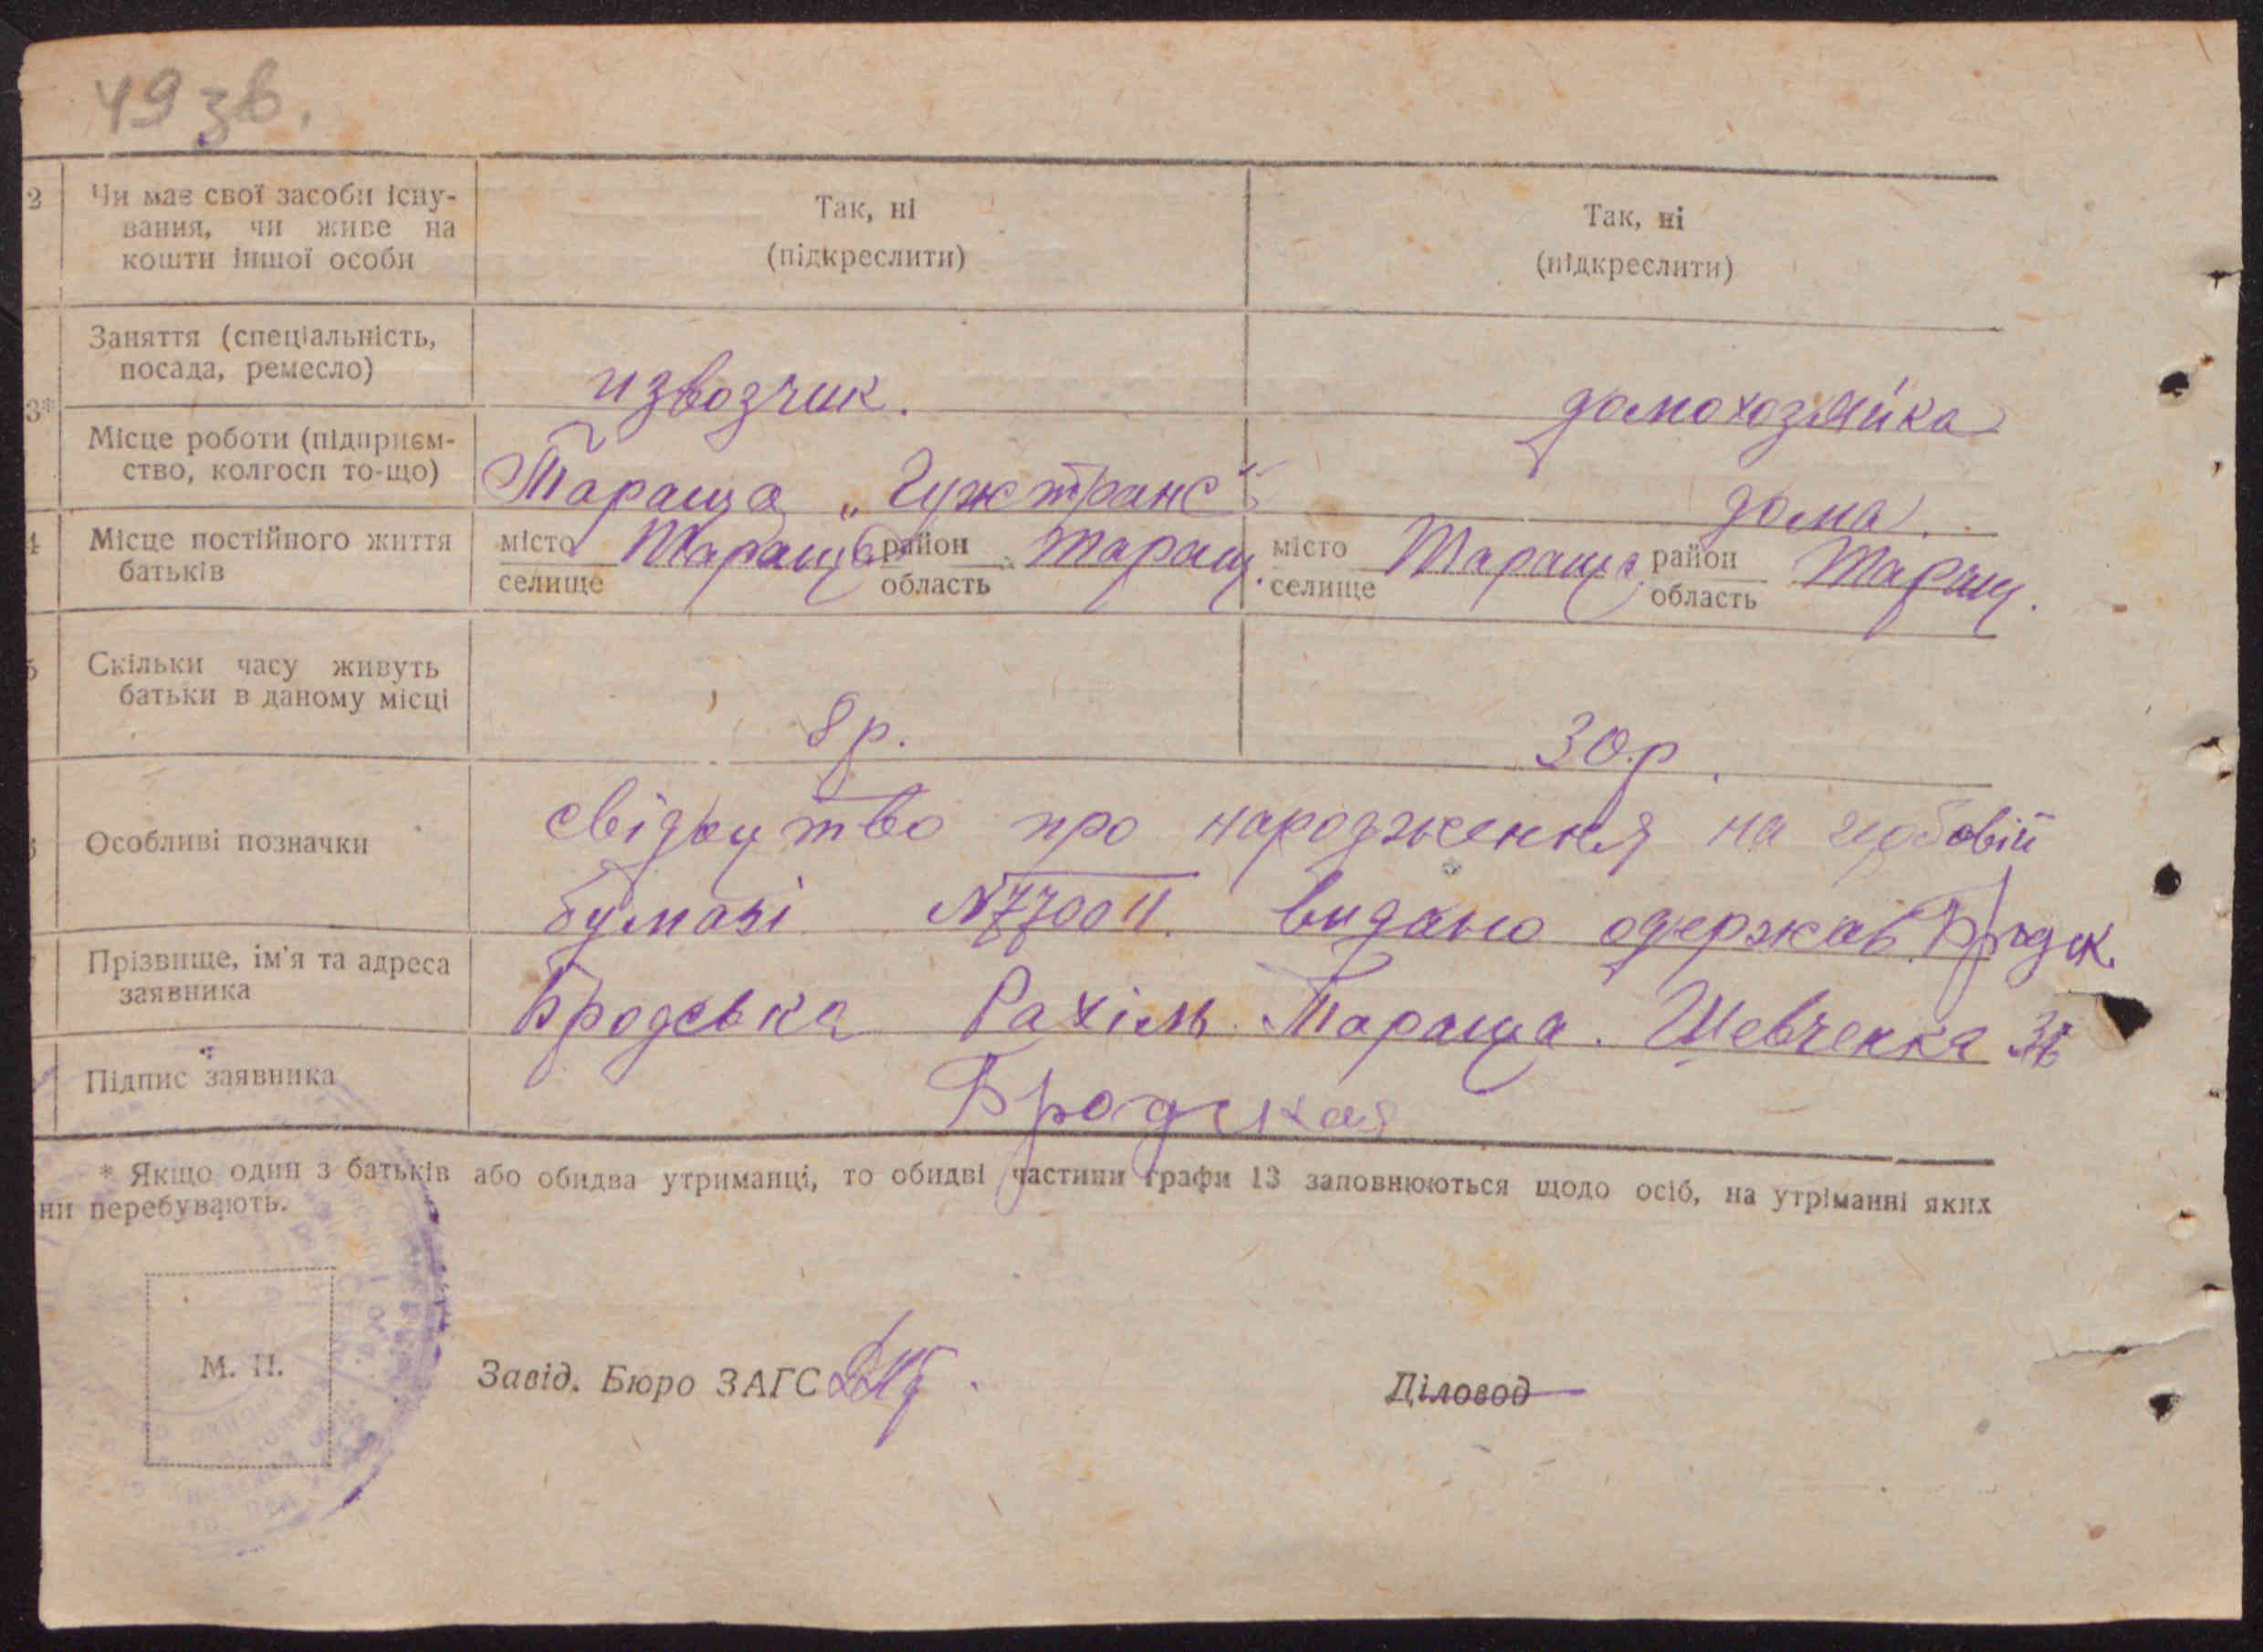 49 зв.
2 Чи має свої засоби існу-
вання, чи живе на
кошти іншої особи
Так, ні
(підкреслити)
Так, ні
(підкреслити)
3*
Заняття (спеціальність,
посада, ремесло)
извозчик.
домохозяйка
Місце роботи (підприєм-
ство, колгосп то-що)
Тараща „Гужтранс“
дома.
4 Місце постійного життя
батьків
місто Тараща район Таращ.
селище область
місто Тараща район Таращ.
селище область
5 Скільки часу живуть
батьки в даному місці
8 р.
30 р.
Особливі позначки
свідоцтво про народження на гербовій
бумазі № 770011. видано одержав
Прізвище, ім'я та адреса
заявника
Бродська Рахіль Тараща. Шевченка
Підпис заявника
Бродская
* Якщо один з батьків або обидва утриманці, то обидві частини графи 13 заповнюються щодо осіб, на утріманні яких
ни перебувають.
М. П.
Завід. Бюро ЗАГС
Діловод